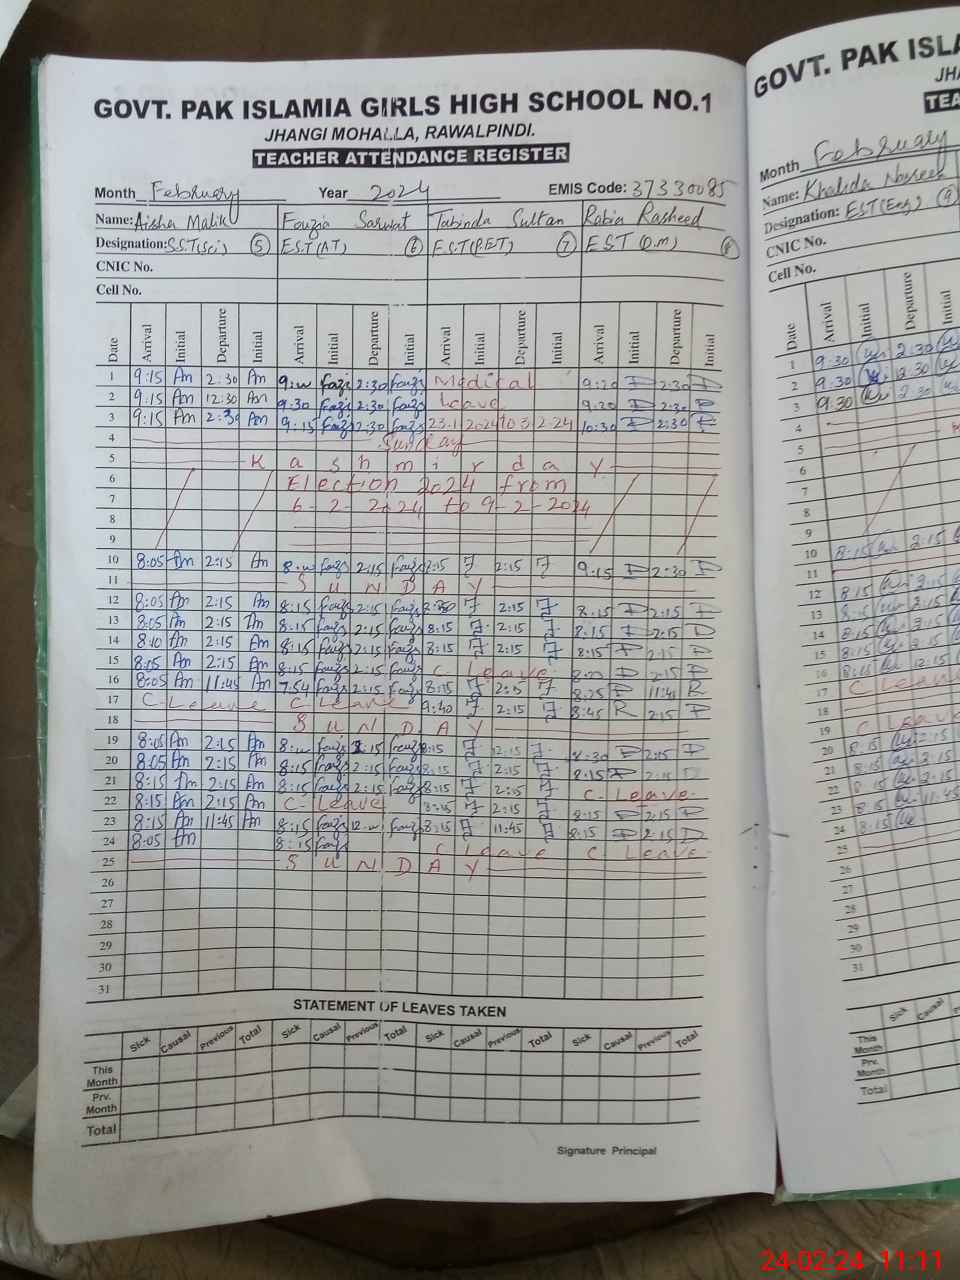 GOVT. PAK ISLAMIA GIRLS HIGH SCHOOL NO.1
JHANGI MOHALLA, RAWALPINDI.
TEACHER ATTENDANCE REGISTER
Month February Year 2024 EMIS Code: 37330085
Name: Aisha Malik Fouzia Sarwat Tabinda Sultan Rabia Rasheed
Designation: S.S.T(Sci) 5 E.S.T(AT) 6 E.S.T(PET) 7 EST (D.M) 8
CNIC No.
Cell No.
Date Arrival Initial Departure Initial Arrival Initial Departure Initial Arrival Initial Departure Initial Arrival Initial Departure Initial
1 9:15 Am 2:30 Am 2:30 Medical 9:20 2:30
2 9:15 Am 12:30 Am 9:30 2:30 Leave 9:20 2:30
3 9:15 Am 2:30 Am 9:15 2:30 10:30 2:30
4 Sunday
5 Kashmir day
6 Election 2024 from
7 6-2-2024 to 9-2-2024
8
9
10 8:05 Am 2:15 Am 2:15 2:15 9:15 2:30
11 SUNDAY
12 8:05 Am 2:15 Am 8:15 2:15 2:15 8:15 2:15
13 8:05 Am 2:15 Am 8:15 2:15 8:15 2:15 8:15 2:15
14 8:10 Am 2:15 Am 8:15 2:15 8:15 2:15 8:15 2:15
15 8:05 Am 2:15 Am 8:15 2:15 C. Leave 2:15
16 8:05 Am 11:45 Am 7:54 2:15 8:15 8:25 11:45 R
17 C-Leave C-Leave 9:40 2:15 8:45 R 2:15
18 SUNDAY
19 8:05 Am 2:15 Am 2:15 8:15 12:15 8:30 2:15
20 8:05 Am 2:15 Am 8:15 2:15 8:15 2:15 8:15 2:15
21 8:15 Am 2:15 Am 8:15 2:15 8:15 C-Leave
22 8:15 Am 2:15 Am C-Leave 8:15 2:15 8:15 2:15
23 8:15 Am 11:45 Am 8:15 8:15 11:45 8:15 2:15
24 8:05 Am 8:15 C Leave C Leave
25 SUNDAY
26
27
28
29
30
31
STATEMENT OF LEAVES TAKEN
Sick Causal Previous Total Sick Causal Previous Total Sick Causal Previous Total Sick Causal Previous Total
This Month
Prv. Month
Total
Signature Principal
GOVT. PAK ISLA
JHA
TEA
Month February
Name: Khalida Nasreen
Designation: EST(Eng) 9
CNIC No.
Cell No.
Date Arrival Initial Departure Initial
1 9:30 2:30
2 9:30 12:30
3 9:30 2:30
4
5
6
7
8
9
10 8:15 2:15
11
12 8:15 2:15
13 8:15 2:15
14 8:15 2:15
15 8:15 2:15
16 8:15 12:15
17 C Leave
18
19 C Leave
20 8:15 2:15
21 8:15 2:15
22 8:15 2:15
23 8:15 11:45
24 8:15
25
26
27
28
29
30
31
Sick Causal
This Month
Prv. Month
Total
24-02-24 11:11